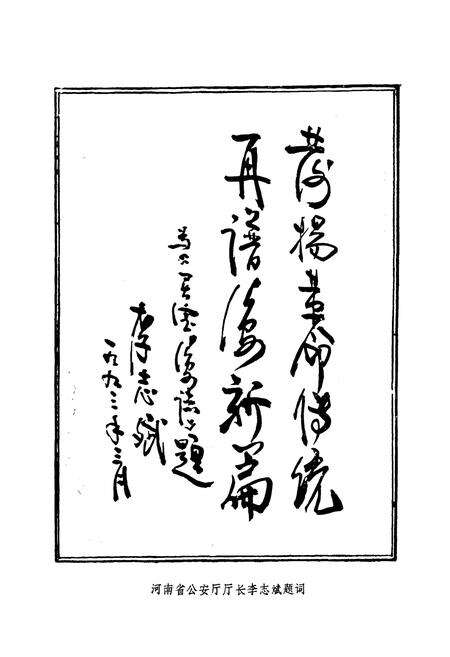 发扬革命传统
再谱公安新篇
为《灵宝公安志》题
李志斌
一九九三年三月
河南省公安厅厅长李志斌题词